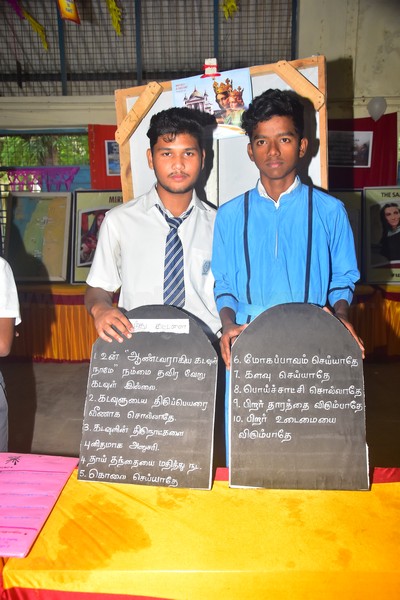 1. உன் "ஆண்டவராகிய கடவுள்
நாமே" நம்மை தவிர வேறு
கடவுள் இல்லை.
2. கடவுளுடைய திருப்பெயரை
வீணாக சொல்லாதே.
3. கடவுளின் திருநாட்களை
புனிதமாக அனுசரி.
4. தாய் தந்தையை மதித்து நட.
5. கொலை செய்யாதே
6. மோகப்பாவம் செய்யாதே
7. களவு செய்யாதே
8. பொய்ச்சாட்சி சொல்லாதே
9. பிறர் தாரத்தை விரும்பாதே
10. பிறர் உடைமையை
விரும்பாதே
THE SA